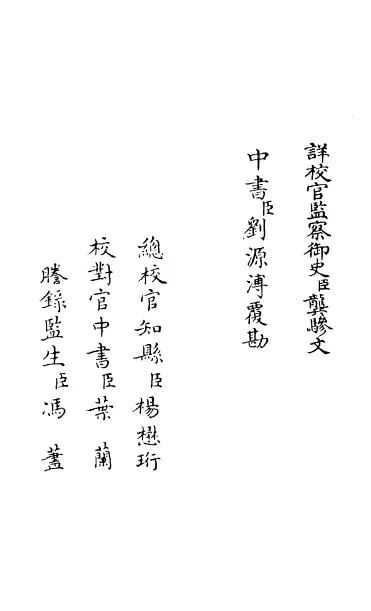 詳校官監察御史臣龔驂文
中書臣劉源溥覆勘
總校官知縣臣楊懋珩
校對官中書臣葉蘭
謄錄監生臣馮藎